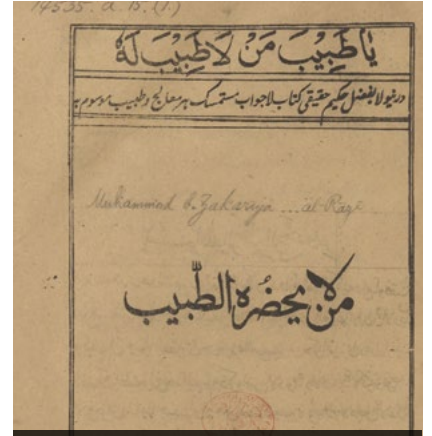 14535. a. 15. (1.)
يا طَبِيْبَ مَنْ لَا طَبِيْبَ لَهٗ
درینولا بفضل حکیم حقیقی کتاب لاجواب مستمسک ہر معالج و طبیب موسوم بہ
Muhammad b. Zakariyā ... al-Rāzī
من لا يحضُره الطّبيب